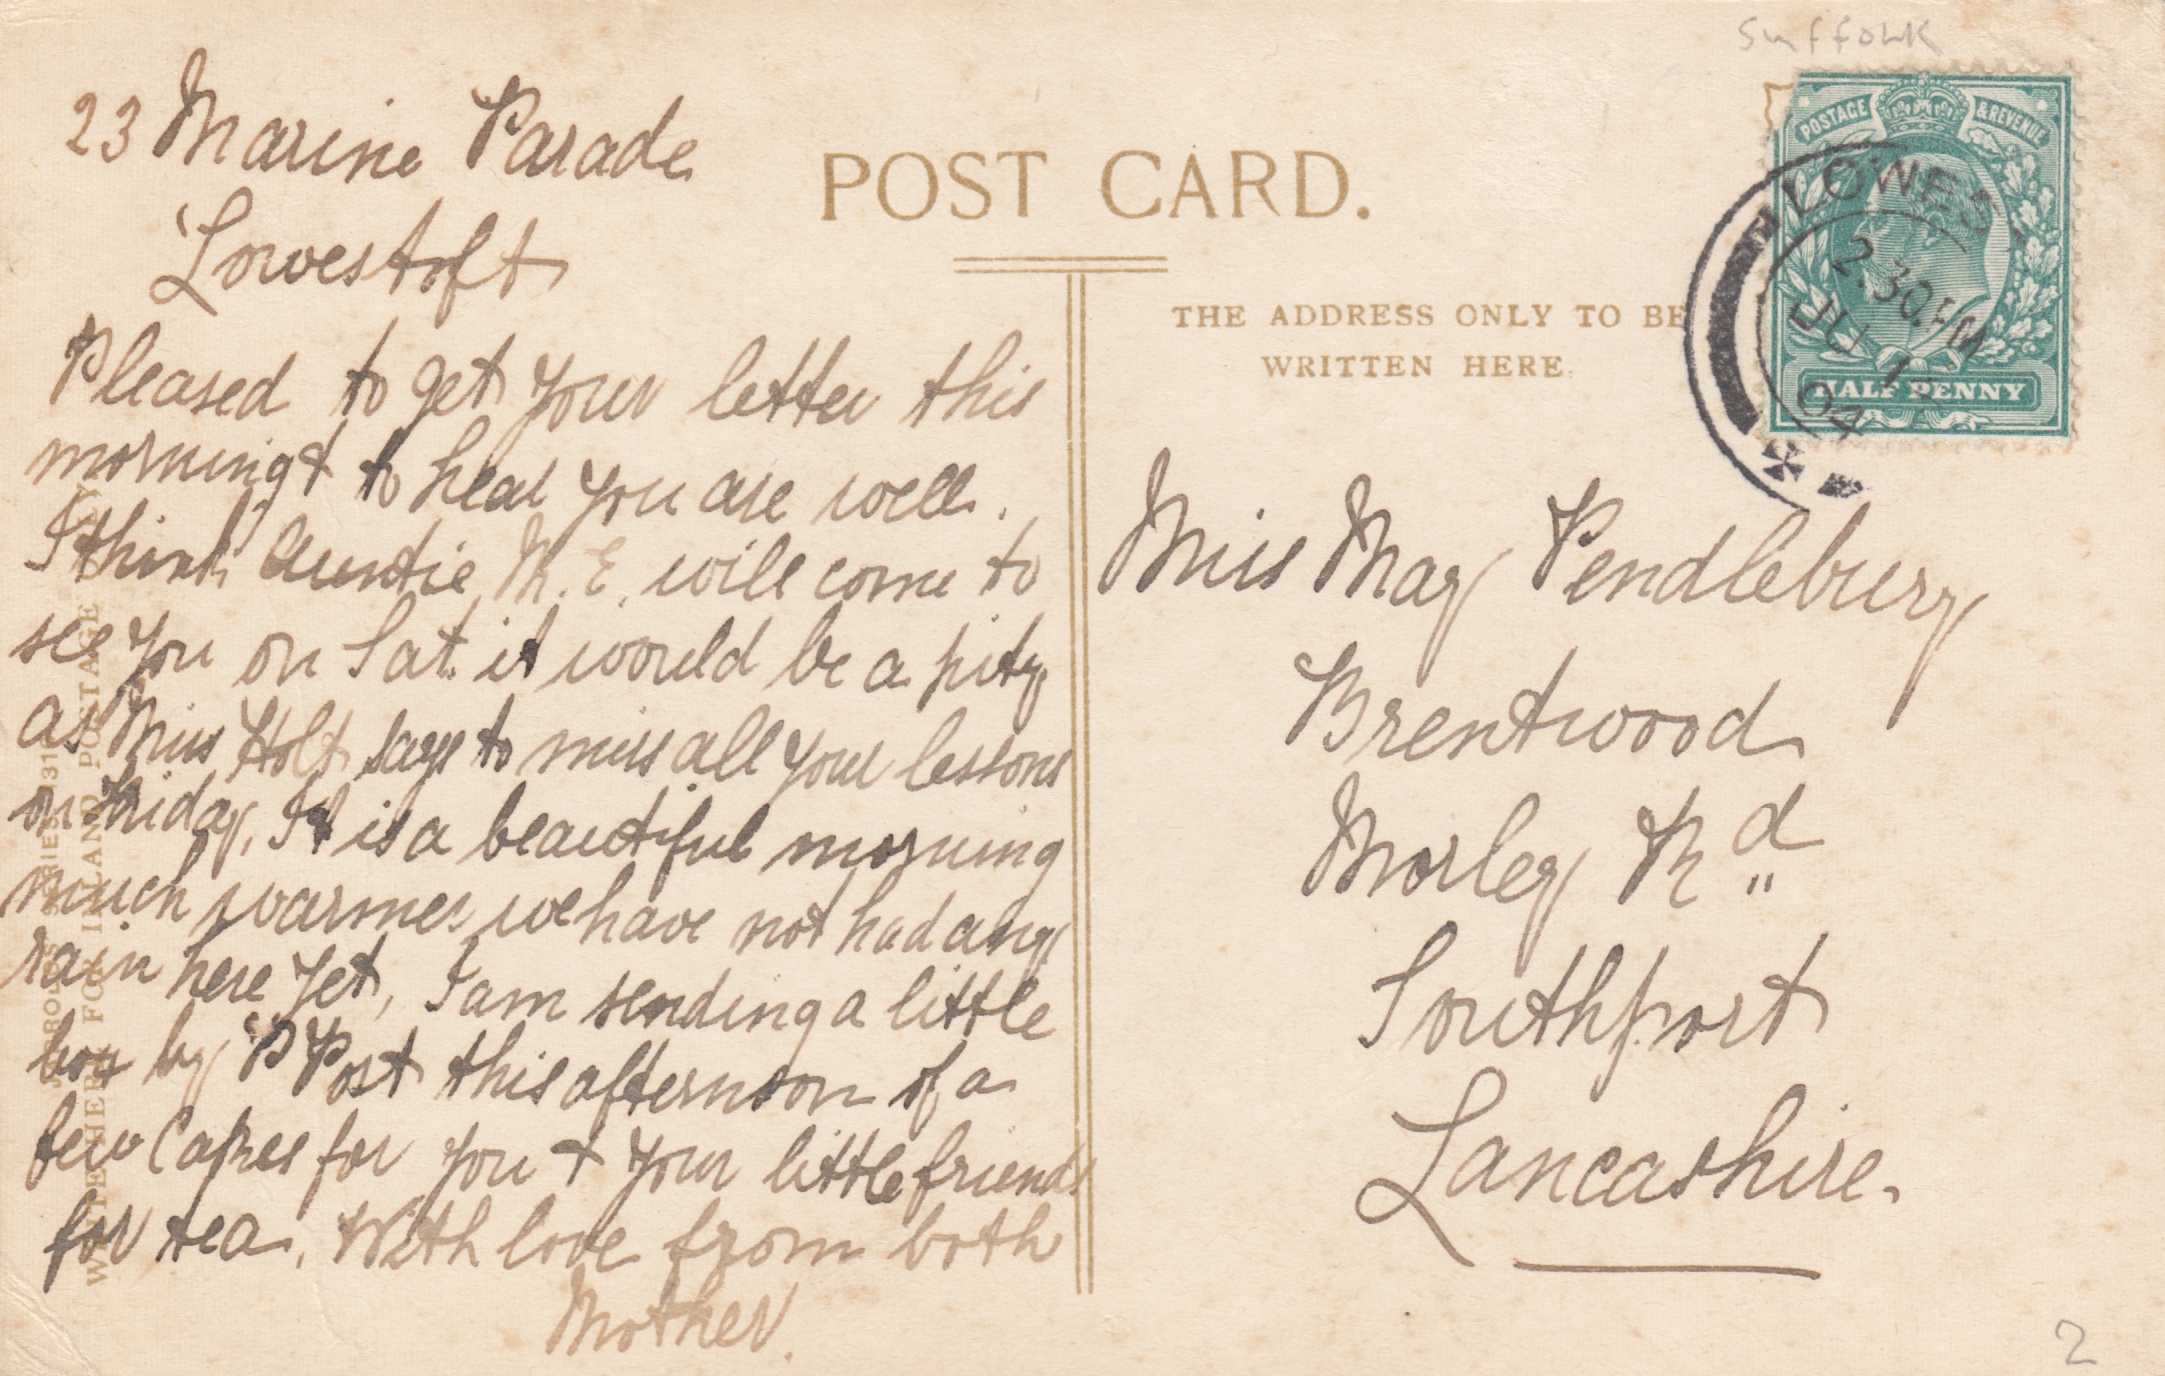 Suffolk
23 Marine Parade
Lowestoft
Pleased to get your letter this
morning & to hear you are well.
I think Auntie M. E. will come to
see you on Sat. it would be a pity
as Miss Holt says to miss all your lessons
on Friday, It is a beautiful morning
much warmer we have not had any
rain here yet, I am sending a little
box by P Post this afternoon of a
few Cakes for you & your little friends
for tea. With love from both
Mother.
POST CARD.
THE ADDRESS ONLY TO BE
WRITTEN HERE
POSTAGE & REVENUE
HALF PENNY
LOWEST
2.30.PM
JU
04
Miss May Pendlebury
Brentwood
Morley Rd
Southport
Lancashire.
2
FOR INLAND POSTAGE
SERIES 31